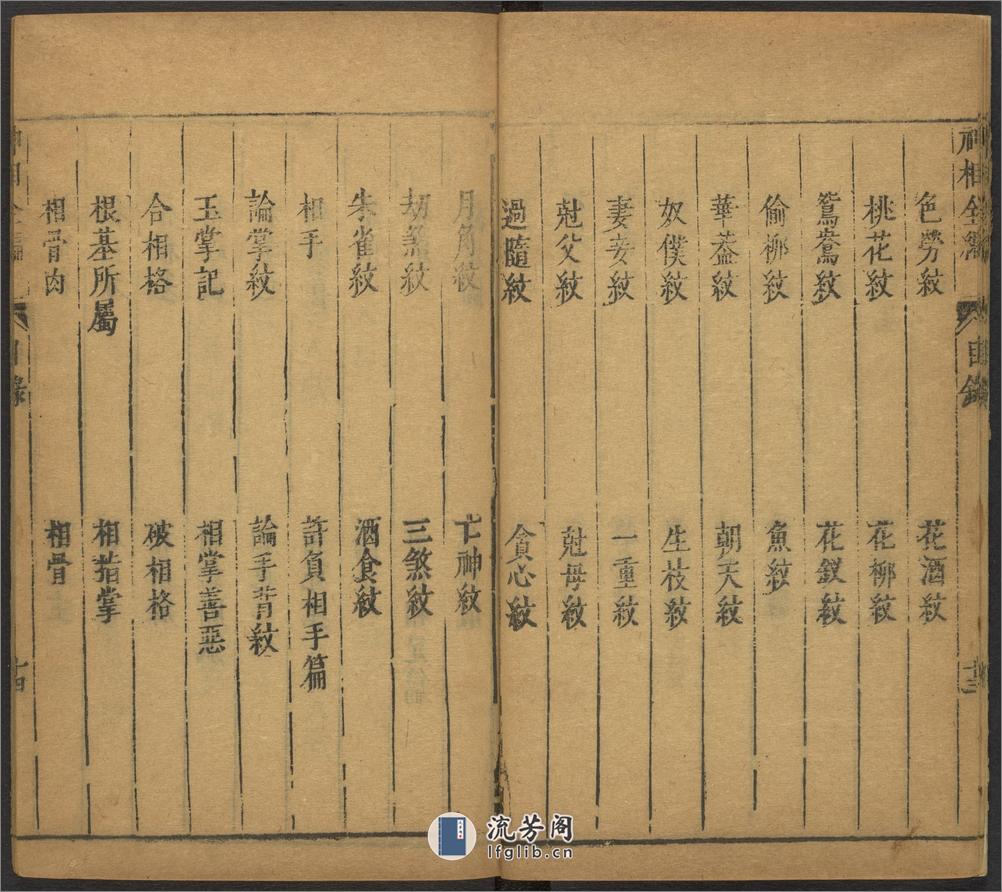 神相全編 目錄 十三
色勞紋 花酒紋
桃花紋 花柳紋
鴛鴦紋 花釵紋
偷柳紋 魚紋
華蓋紋 朝天紋
奴僕紋 生枝紋
妻妾紋 一重紋
尅父紋 尅母紋
過隨紋 貪心紋
月角紋 亡神紋
劫煞紋 三煞紋
朱雀紋 酒食紋
相手 許負相手篇
論掌紋 論手背紋
玉掌記 相掌善惡
合相格 破相格
根基所屬 相指掌
相骨肉 相骨
目錄 十四
流芳阁
lfglib.cn